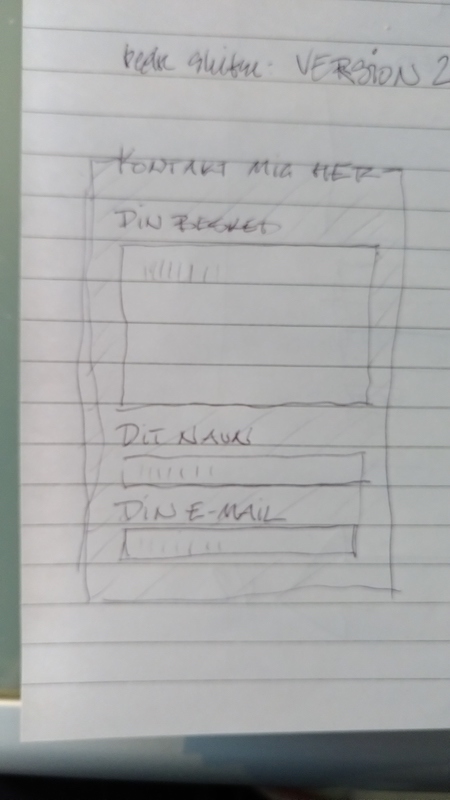 VERSION 2
KONTAKT MIG HER
DIN BESKED
DIT NAVN
DIN E-MAIL